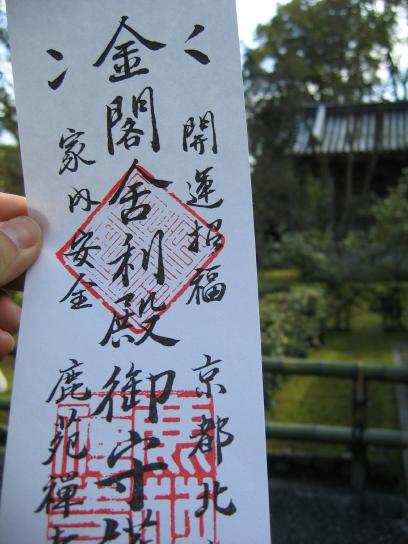 開運招福
京都北
金閣舍利殿御守
家内安全
鹿苑禪